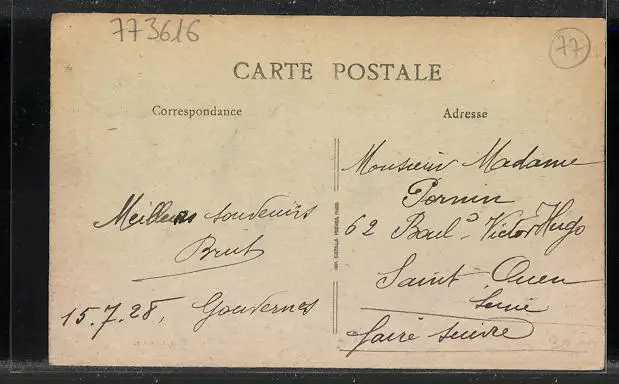 773616
77
CARTE POSTALE
Correspondance
Adresse
Meilleurs souvenirs
Brut
15.7.28, Gouvernes
Monsieur Madame
Pornin
62 Boul.ᵈ Victor Hugo
Saint Ouen
Seine
faire suivre